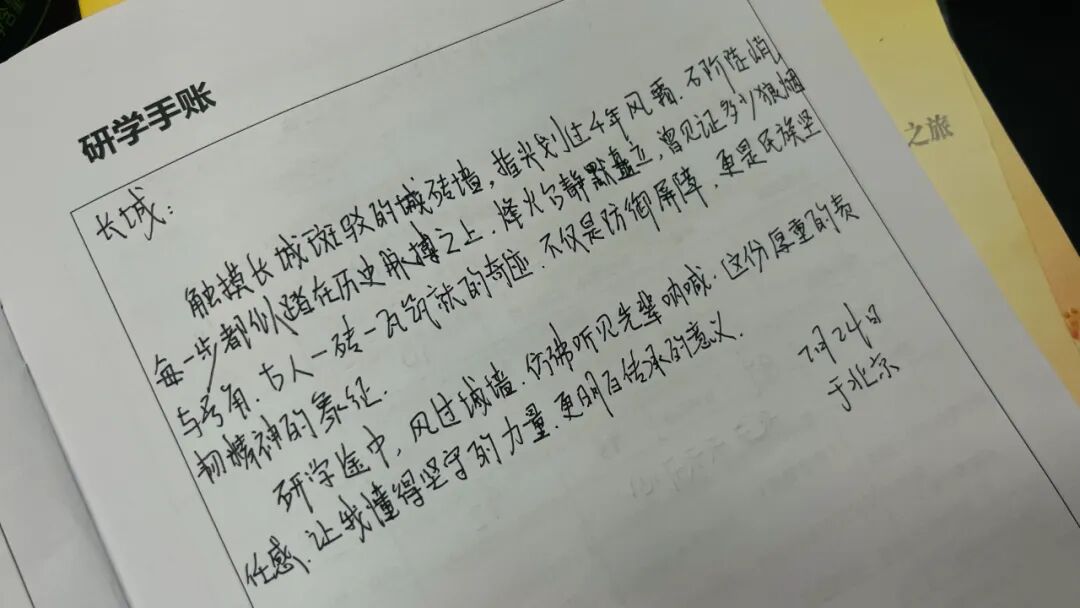 研学手账
长城：
触摸长城斑驳的城砖墙，指尖划过千年风霜．石阶陡峭，
每一步都似踏在历史脉搏之上．烽火台静默矗立，曾见证多少狼烟
与号角．古人一砖一瓦筑就的奇迹．不仅是防御屏障，更是民族坚
韧精神的象征．
研学途中，风过城墙．仿佛听见先辈呐喊．这份厚重的责
任感．让我懂得坚守的力量．更明白传承的意义．
7月24日
于北京
之旅